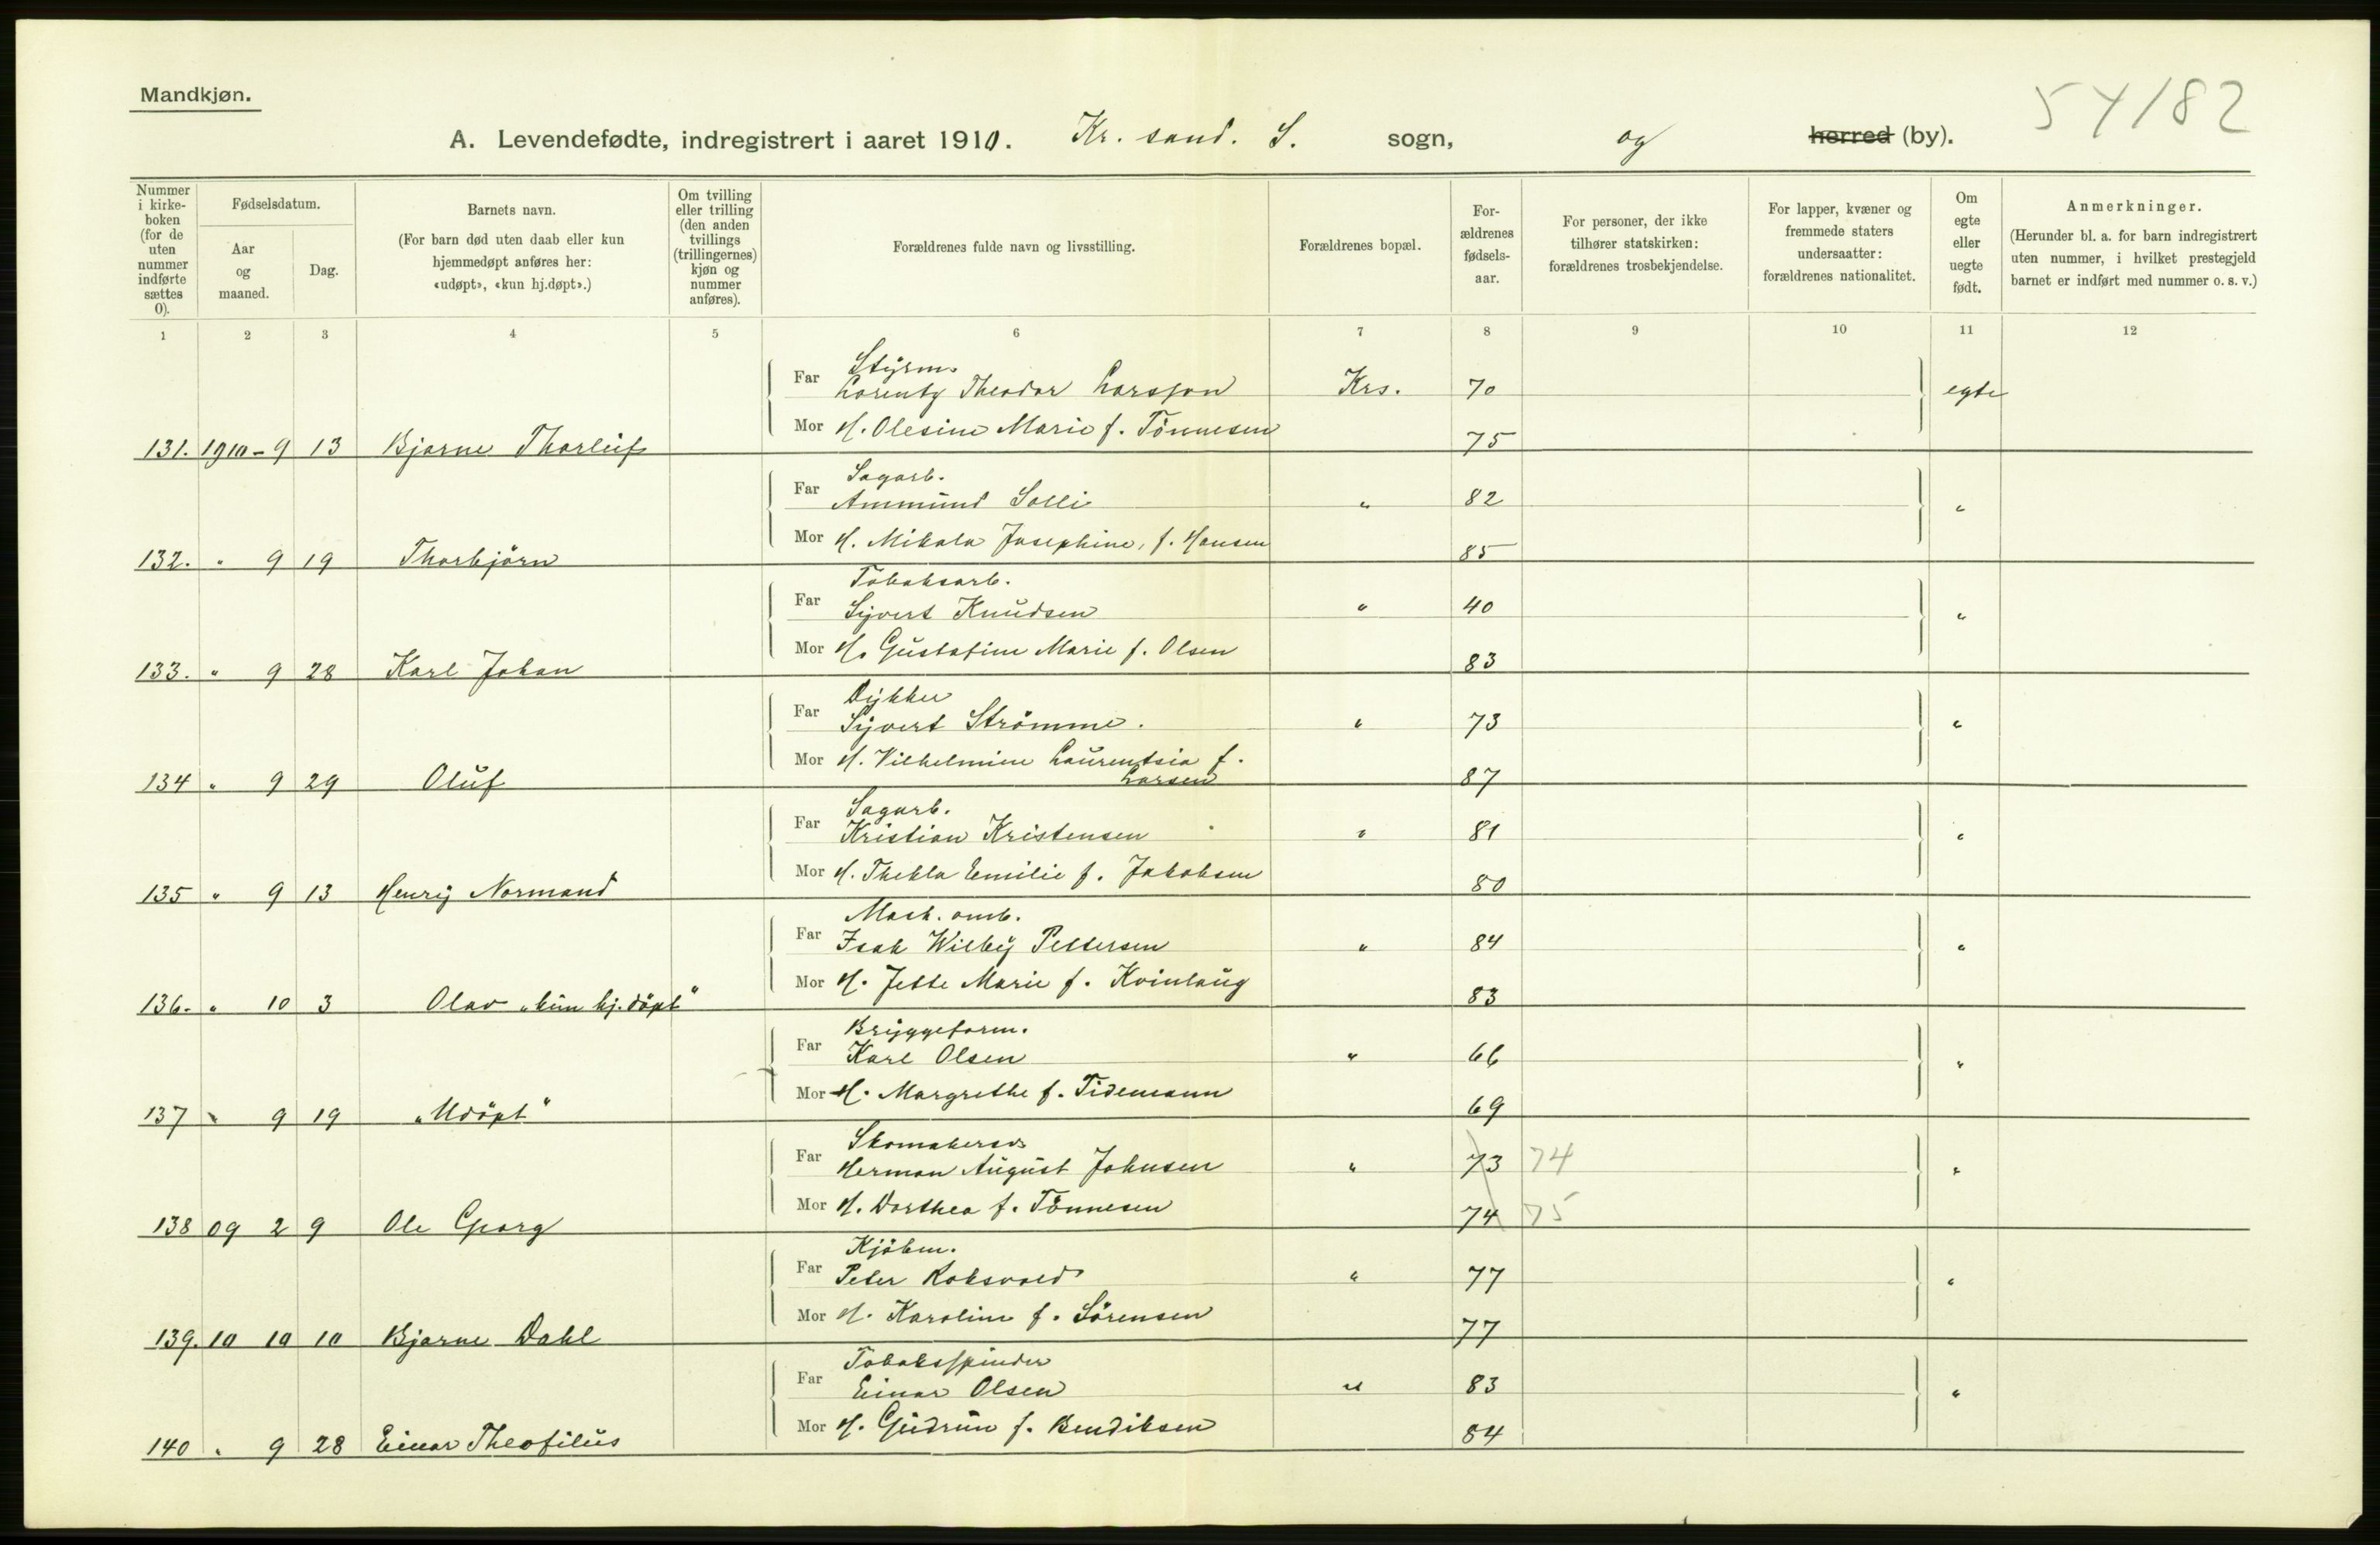 Mandkjøn.
54/82
A. Levendefødte, indregistrert i aaret 1910. Kr. sand. S. sogn, og herred (by).
Nummer i kirke-boken (for de uten nummer indførte sættes 0).
Fødselsdatum.
Aar og maaned.
Dag.
Barnets navn.
(For barn død uten daab eller kun hjemmedøpt anføres her: «udøpt», «kun hj.døpt».)
Om tvilling eller trilling (den anden tvillings (trillingernes) kjøn og nummer anføres).
Forældrenes fulde navn og livsstilling.
Forældrenes bopæl.
For-ældrenes fødsels-aar.
For personer, der ikke tilhører statskirken: forældrenes trosbekjendelse.
For lapper, kvæner og fremmede staters undersaatter: forældrenes nationalitet.
Om egte eller uegte født.
Anmerkninger.
(Herunder bl. a. for barn indregistrert uten nummer, i hvilket prestegjeld barnet er indført med nummer o. s. v.)
1 2 3 4 5 6 7 8 9 10 11 12
Styrm.
Far Lorentz Theodor Larsson Krs. 70 egte
Mor H. Olesine Marie f. Tönnesen 75
131. 1910-9 13 Bjarne Thorleif
Sagarb.
Far Ammund Solli " 82 "
Mor H. Mikala Josephine, f. Hansen 85
132. " 9 19 Thorbjörn
Tobaksarb.
Far Syvert Knudsen " 40 "
Mor H. Gustafine Marie f. Olsen 83
133. " 9 28 Karl Johan
Dykker
Far Syvert Strömme. " 73 "
Mor H. Vilhelmine Laurentsia f.
Larsen 87
134 " 9 29 Oluf
Sagarb.
Far Kristian Kristensen " 81 "
Mor H. Thekla Emilie f. Jakobsen 80
135 " 9 13 Henry Normand
Mask. omb.
Far Isak Wilby Pettersen " 84 "
Mor H. Jette Marie f. Kvinlaug 83
136. " 10 3 Olav „kun hj. döpt"
Bryggeform.
Far Karl Olsen " 66 "
Mor H. Margrethe f. Tidemann 69
137 " 9 19 „Udöpt"
Skomakersv.
Far Herman August Johnsen " 73 74 "
Mor H. Dorthea f. Tönnesen 74 75
138 09 2 9 Ole Georg
Kjöbm.
Far Peter Roksvold " 77 "
Mor H. Karoline f. Sörensen 77
139. 10 10 10 Bjarne Dahl
Tobaksspinder
Far Einar Olsen " 83 "
Mor H. Gudrun f. Bendiksen 84
140 " 9 28 Einar Theofilus